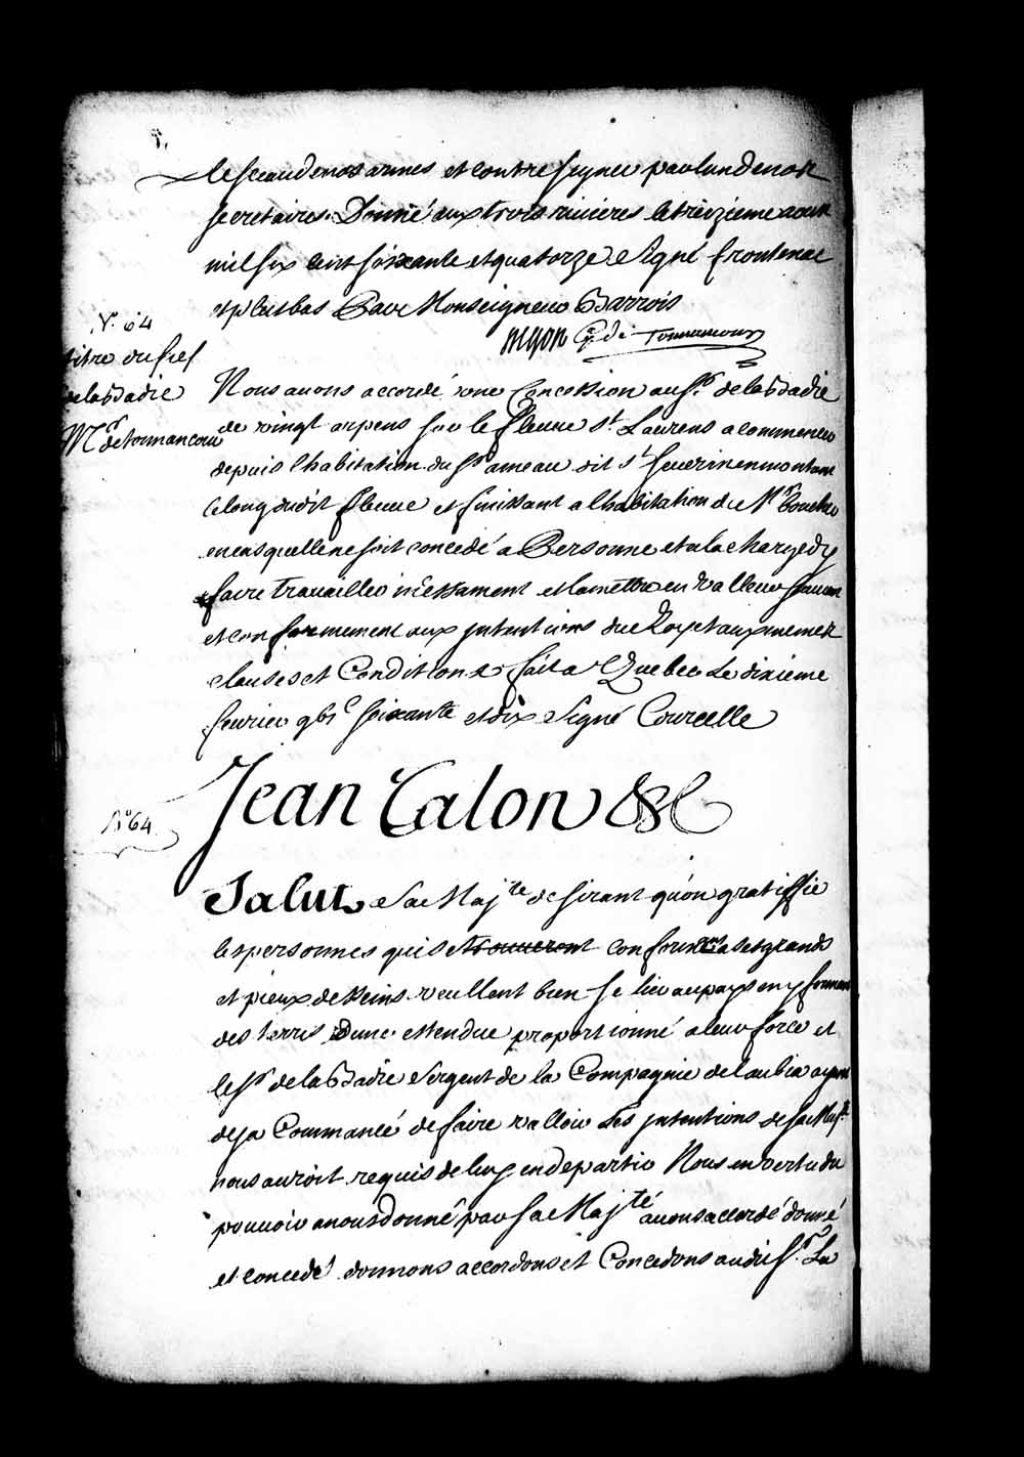 le sceau de nos armes et contresigner par l'un de nos
secretaires. Donné aux trois rivieres le treizieme aoust
mil six cent soixante et quatorze Signé frontenac
et plus bas Par Monseigneur Barrois
N.º 64
titre du fief
de labadie
Mr de tonnancour
Nous auons accordé une Concession au Sr. de labadie
de vingt arpens sur le fleuue St. Laurens a commencer
depuis l'habitation du Sr ameau dit St seuerin en montant
le long dudit fleuue et finissant a l'habitation du Mr boucher
en cas quelle ne soit concedé a Personne et a la charge dy
faire trauailler incessament et la mettre en valleur suiuant
et conformement aux intentions du Roy et aux mêmes
clauses et Conditions fait a Quebec Le dixieme
feurier gbic soixante et dix Signé Courcelle
Nº 64
Jean Talon &c
Salut Sa Majté desirant quon gratiffie
les personnes qui se trouueront conforme a ses grands
et pieux desseins veullent bien se lier au pays en y formant
des terres Dune ettendue proportionné a leur force et
le Sr de labadie Sergent de la Compagnie de laubia ayant
deja Commancé de faire valloir les intentions de sa Majté.
nous auroit requis de luy en departir Nous en vertu du
pouuoir a nous donné par sa Majté auons accordé donné
et concedé donnons accordons et Concedons audit Sr. La